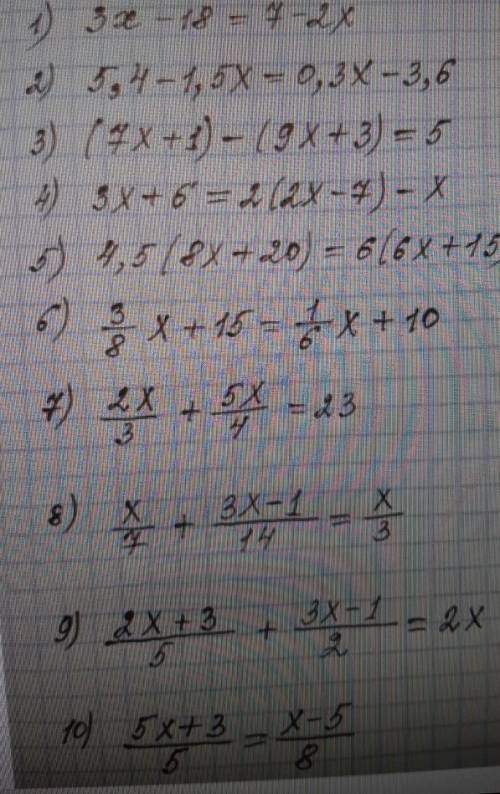 1) 3x - 18 = 7 - 2x
2) 5,4 - 1,5x = 0,3x - 3,6
3) (7x + 1) - (9x + 3) = 5
4) 3x + 6 = 2(2x - 7) - x
5) 4,5(8x + 20) = 6(6x + 15
6) 3/8 x + 15 = 1/6 x + 10
7) 2x/3 + 5x/4 = 23
8) x/7 + 3x-1/14 = x/3
9) 2x+3/5 + 3x-1/2 = 2x
10) 5x+3/5 = x-5/8